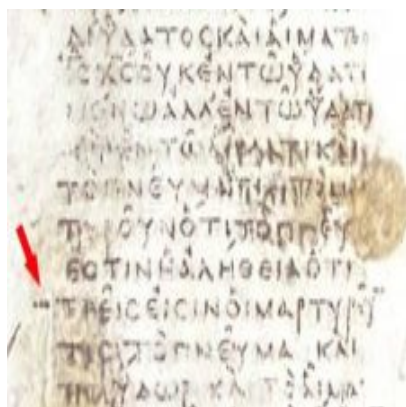 ΔΙΥΔΑΤΟϹΚΑΙΑΙΜΑΤΟ
ΧϹΟΥΚΕΝΤΩΥΔΑΤΙ
ΜΟΝΩΑΛΛΕΝΤΩΥΔΑΤΙ
ΕΝΤΩ ΚΑΙ
ΤΟΠΝΕΥΜΑ
ΤΥΡΟΥΝΟΤΙΤΟΠΝΕΥ
ΕϹΤΙΝΗΑΛΗΘΕΙΑΟΤΙ
ΤΡΕΙϹΕΙϹΙΝΟΙΜΑΡΤΥΡΟΥ
ΤΕϹΤΟΠΝΕΥΜΑΚΑΙ
ΤΟΥΔΩΡΚΑΙΤΟΑΙΜΑ